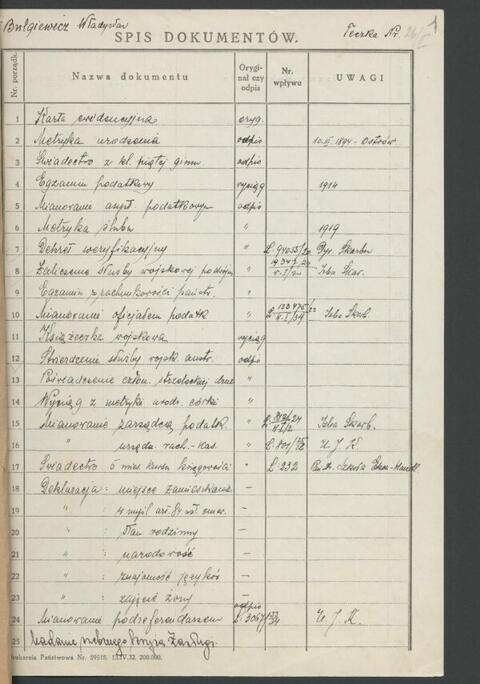 Bulgiewicz Władysław
Teczka Nr. 26/I
SPIS DOKUMENTÓW.
Nr. porządk. Nazwa dokumentu Orygi- nał czy odpis Nr. wpływu UWAGI
1 Karta ewidencyjna oryg.
2 Metryka urodzenia odpis 1894 - Ostrów
3 Świadectwo z kl. piątej gimn. odpis
4 Egzamin podatkowy wyciąg 1914
5 Mianowanie asyst. podatkowym odpis
6 Metryka ślubu " 1919
7 Dekret weryfikacyjny " Dyr. Skarbu
8 Zaliczenie służby wojskowej podwójn. " Izba Skar.
9 Egzamin z rachunkowości państw. "
10 Mianowanie oficjałem podatk. " Izba Skarb.
11 Książeczka wojskowa wyciąg
12 Stwierdzenie służby wojsk. austr. odpis
13 Poświadczenie człon. strzeleckiej "
14 Wyciąg z metryki urodz. córki "
15 Mianowanie zarządcą podatk. " Izba Skarb.
16 " urzędn. rach.-kas. " L. 801 U. J. K.
17 Świadectwo księgowości " L. 232
18 Deklaracja: miejsce zamieszkania —
19 " : w myśl art. 84 —
20 " : stan rodzinny —
21 " : narodowość —
22 " : znajomość języków —
23 " : zajęcie żony —
24 Mianowanie podreferendarzem odpis U. J. K.
25 Nadanie srebrnego Krzyża Zasługi.
Drukarnia Państwowa Nr. 29518. 13.IV.32. 200.000.